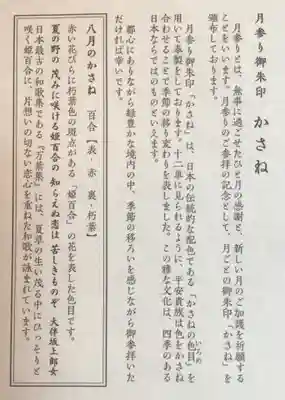 月参り御朱印　かさね
月参りとは、無事に過ごせたひと月の感謝と、新しい月のご加護を祈願する
ことをいいます。月参りのご参拝の記念として、月ごとの御朱印「かさね」を
頒布しております。
月参り御朱印「かさね」は、日本の伝統的な配色である「かさねの色目」を
いろめ
用いて奉製をしております。十二単に見られるように、平安貴族は色をかさね
合わせることで季節の移り変わりを表しました。この雅な文化は、四季のある
日本ならではのものといえます。
都心にありながら緑豊かな境内の中、季節の移ろいを感じながら御参拝いた
だければ幸いです。
八月のかさね　百合【表、赤　裏、朽葉】
赤い花びらに朽葉色の斑点がある「姫百合」の花を表した色目です。
夏の野の　茂みに咲ける姫百合の　知らえぬ恋は　苦しきものぞ　大伴坂上郎女
日本最古の和歌集である『万葉集』には、夏草の生い茂る中にひっそりと
咲く姫百合に、片想いの切ない恋心を重ねた和歌が詠まれています。